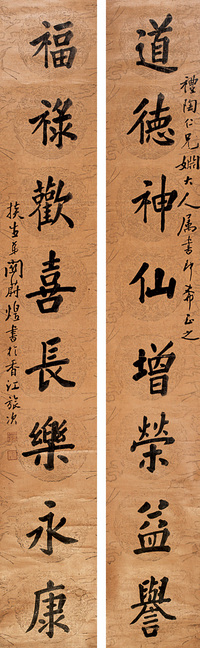 道德神仙增榮益譽
禮陶仁兄姻大人属書即希正之
福祿歡喜長樂永康
蔚煌書於香江旅次